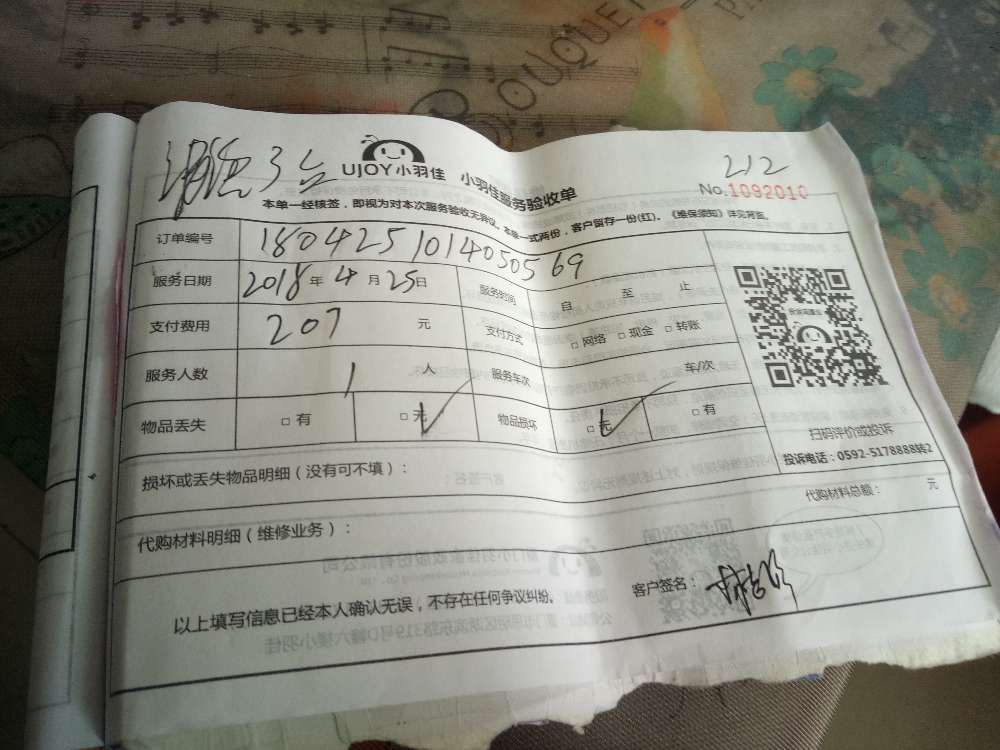 3台
UJOY小羽佳 小羽佳服务验收单
212
No.1092010
本单一经核签，即视为对本次服务验收无异议。本单一式两份，客户留存一份(红)。《维保须知》详见背面。
订单编号 1804251014050569
服务日期 2018年4月25日 服务时间 自 至 止
支付费用 207 元 支付方式 □网络 □现金 □转账
服务人数 1 人 服务车次 车/次
物品丢失 □有 □无 ✓ 物品损坏 □无 ✓ □有
扫码评价或投诉
投诉电话：0592-5178888转2
损坏或丢失物品明细（没有可不填）：
代购材料明细（维修业务）：
代购材料总额： 元
以上填写信息已经本人确认无误，不存在任何争议纠纷。
客户签名：